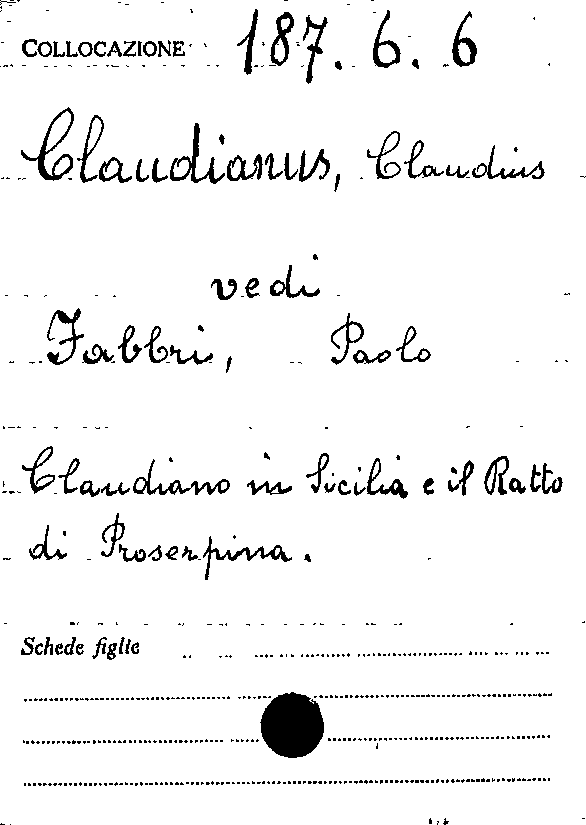 COLLOCAZIONE 187. 6. 6
Claudianus, Claudius
vedi
Fabbri, Paolo
Claudiano in Sicilia e il Ratto
di Proserpina.
Schede figlie